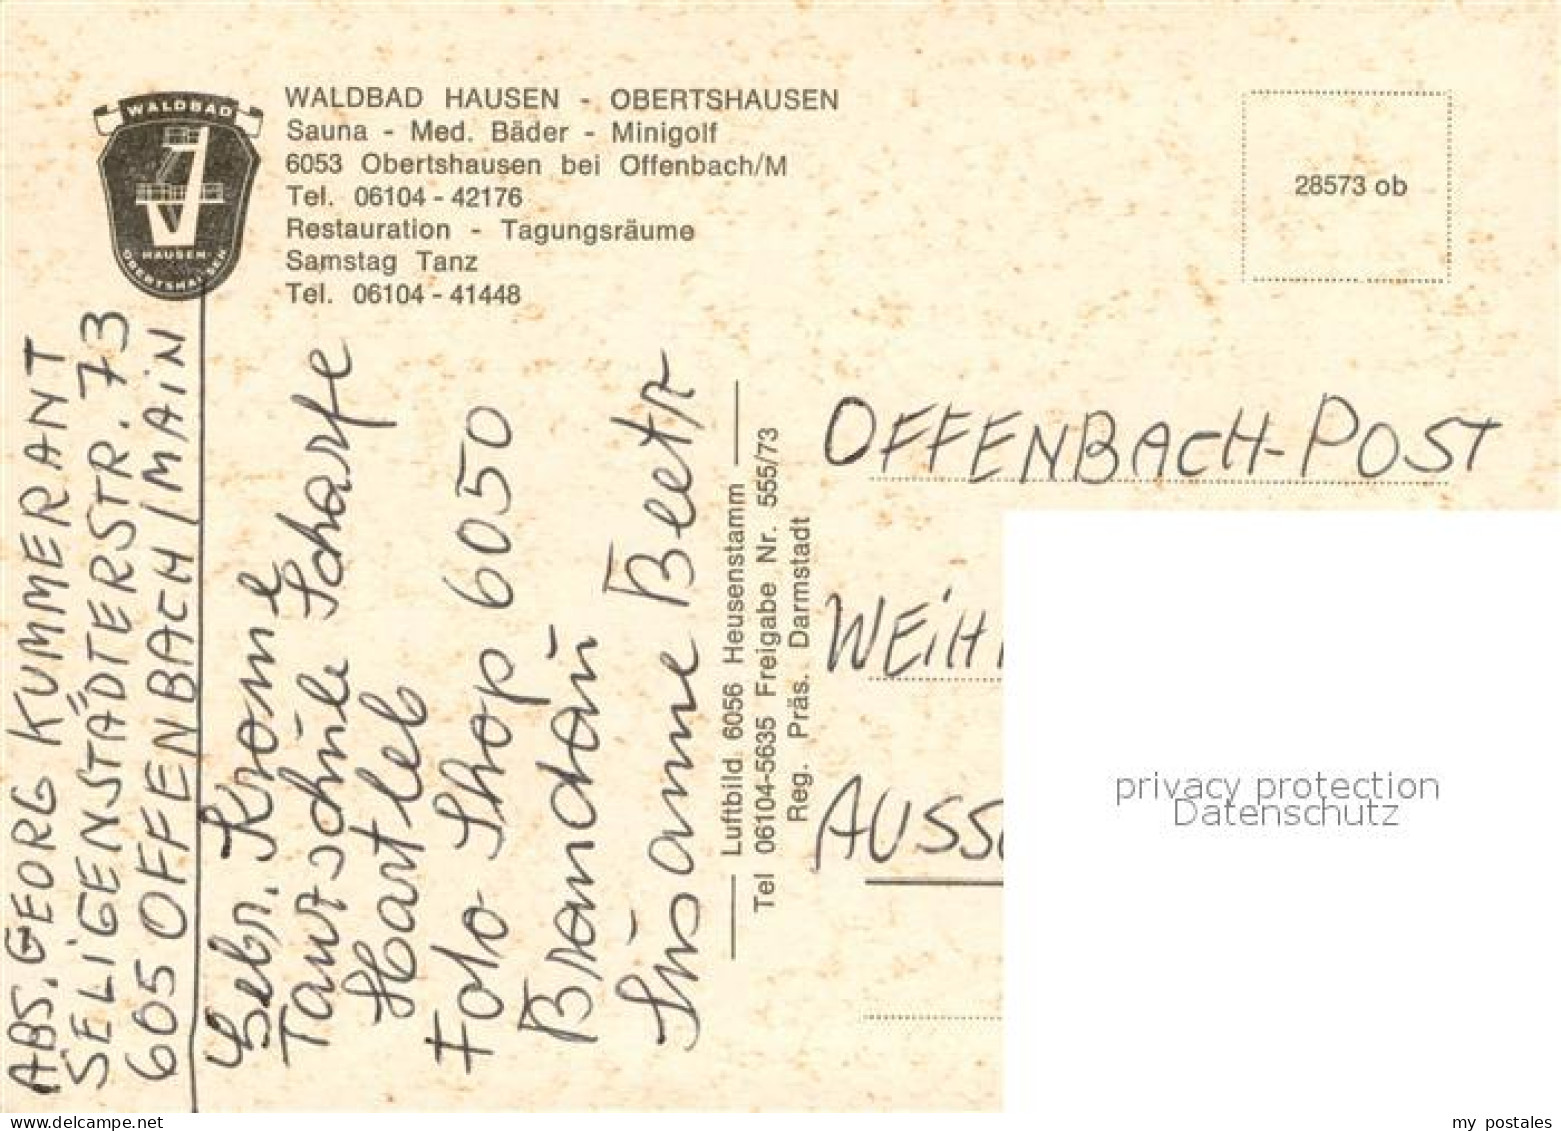 WALDBAD
HAUSEN
OBERTSHAUSEN
WALDBAD HAUSEN - OBERTSHAUSEN
Sauna - Med. Bäder - Minigolf
6053 Obertshausen bei Offenbach/M
Tel. 06104 - 42176
Restauration - Tagungsräume
Samstag Tanz
Tel. 06104 - 41448
28573 ob
ABS. GEORG KUMMERANT
SELIGENSTÄDTERSTR. 73
605 OFFENBACH/MAIN
Gebr. Krome
Tanzschule Scharfe
Hartleb
Foto Shop 6050
Brandau
Susanne Beetz
Luftbild 6056 Heusenstamm
Tel 06104-5635 Freigabe Nr. 555/73
Reg. Präs. Darmstadt
OFFENBACH-POST
WEIH
AUSS
privacy protection
Datenschutz
delcampe.net
my_postales